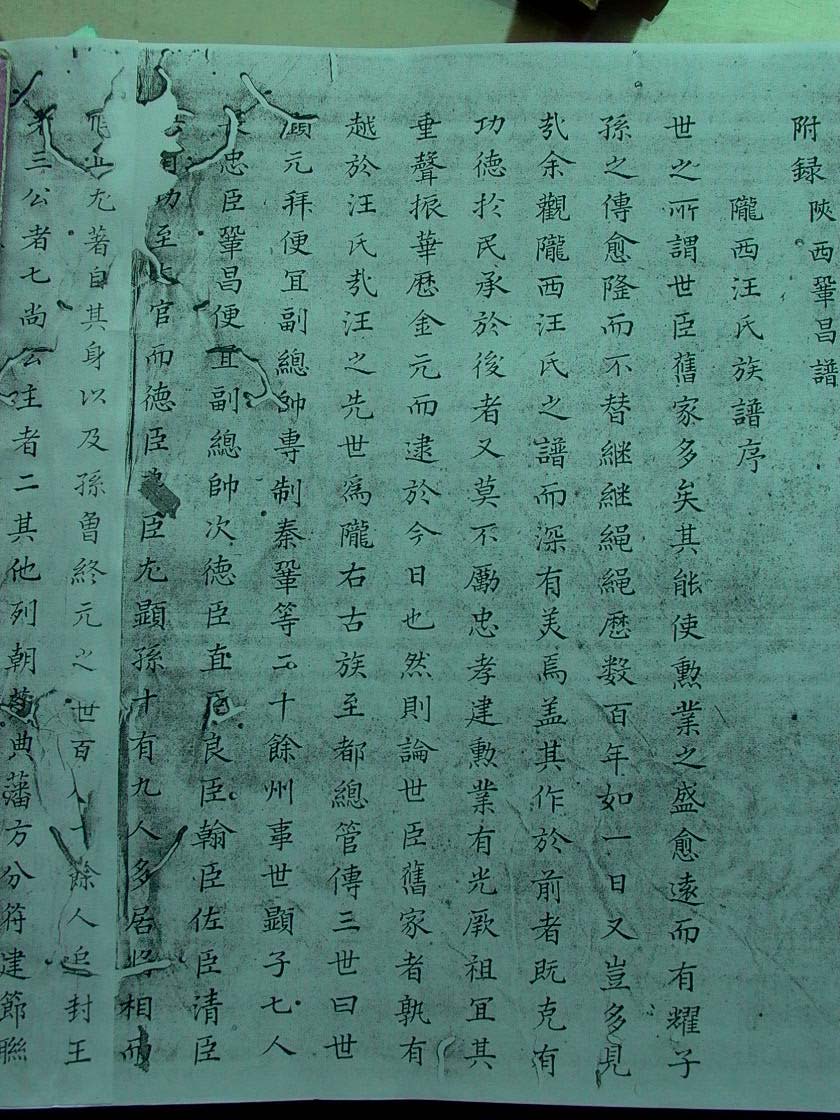 附録陝西鞏昌譜
隴西汪氏族譜序
世之所謂世臣舊家多矣其能使勲業之盛愈遠而有耀子
孫之傳愈隆而不替継継繩繩歴数百年如一日又豈多見
㢤余觀隴西汪氏之譜而深有羙焉盖其作於前者既克有
功德扵民承於後者又莫不勵忠孝建勲業有光厥祖冝其
重聲振華歴金元而逮於今日也然則論世臣舊家者孰有
越於汪氏㢤汪之先世為隴右古族至都總管傳三世曰世
顯元拜便冝副總帥専制秦鞏等二十餘州事世顯子七人
忠臣鞏昌便冝副總帥次徳臣直臣良臣翰臣佐臣清臣
有功至官而徳臣臣尤顯孫十有九人多居将相而
尤著自其身以及孫魯終元之世百餘人追封王
三公者七尚公主者二其他列朝著典藩方分符建節聯